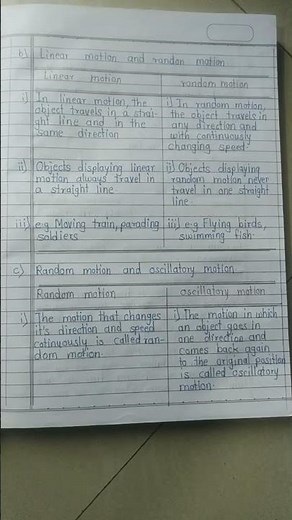 b) Linear motion and random motion
Linear motion
random motion
i) In linear motion, the
object travels in a strai-
ght line and in the
same direction
i) In random motion,
the object travels in
any direction and
with continuously
changing speed
ii) Objects displaying linear
motion always travel in
a straight line
ii) Objects displaying
random motion never
travel in one straight
line.
iii) e.g Moving train, parading
soldiers
iii) e.g Flying birds,
swimming fish.
c) Random motion and oscillatory motion
Random motion
oscillatory motion
i) The motion that changes
it's direction and speed
cotinuously is called ran-
dom motion.
i) The motion in which
an object goes in
one direction and
comes back again
to the original position
is called oscillatory
motion.